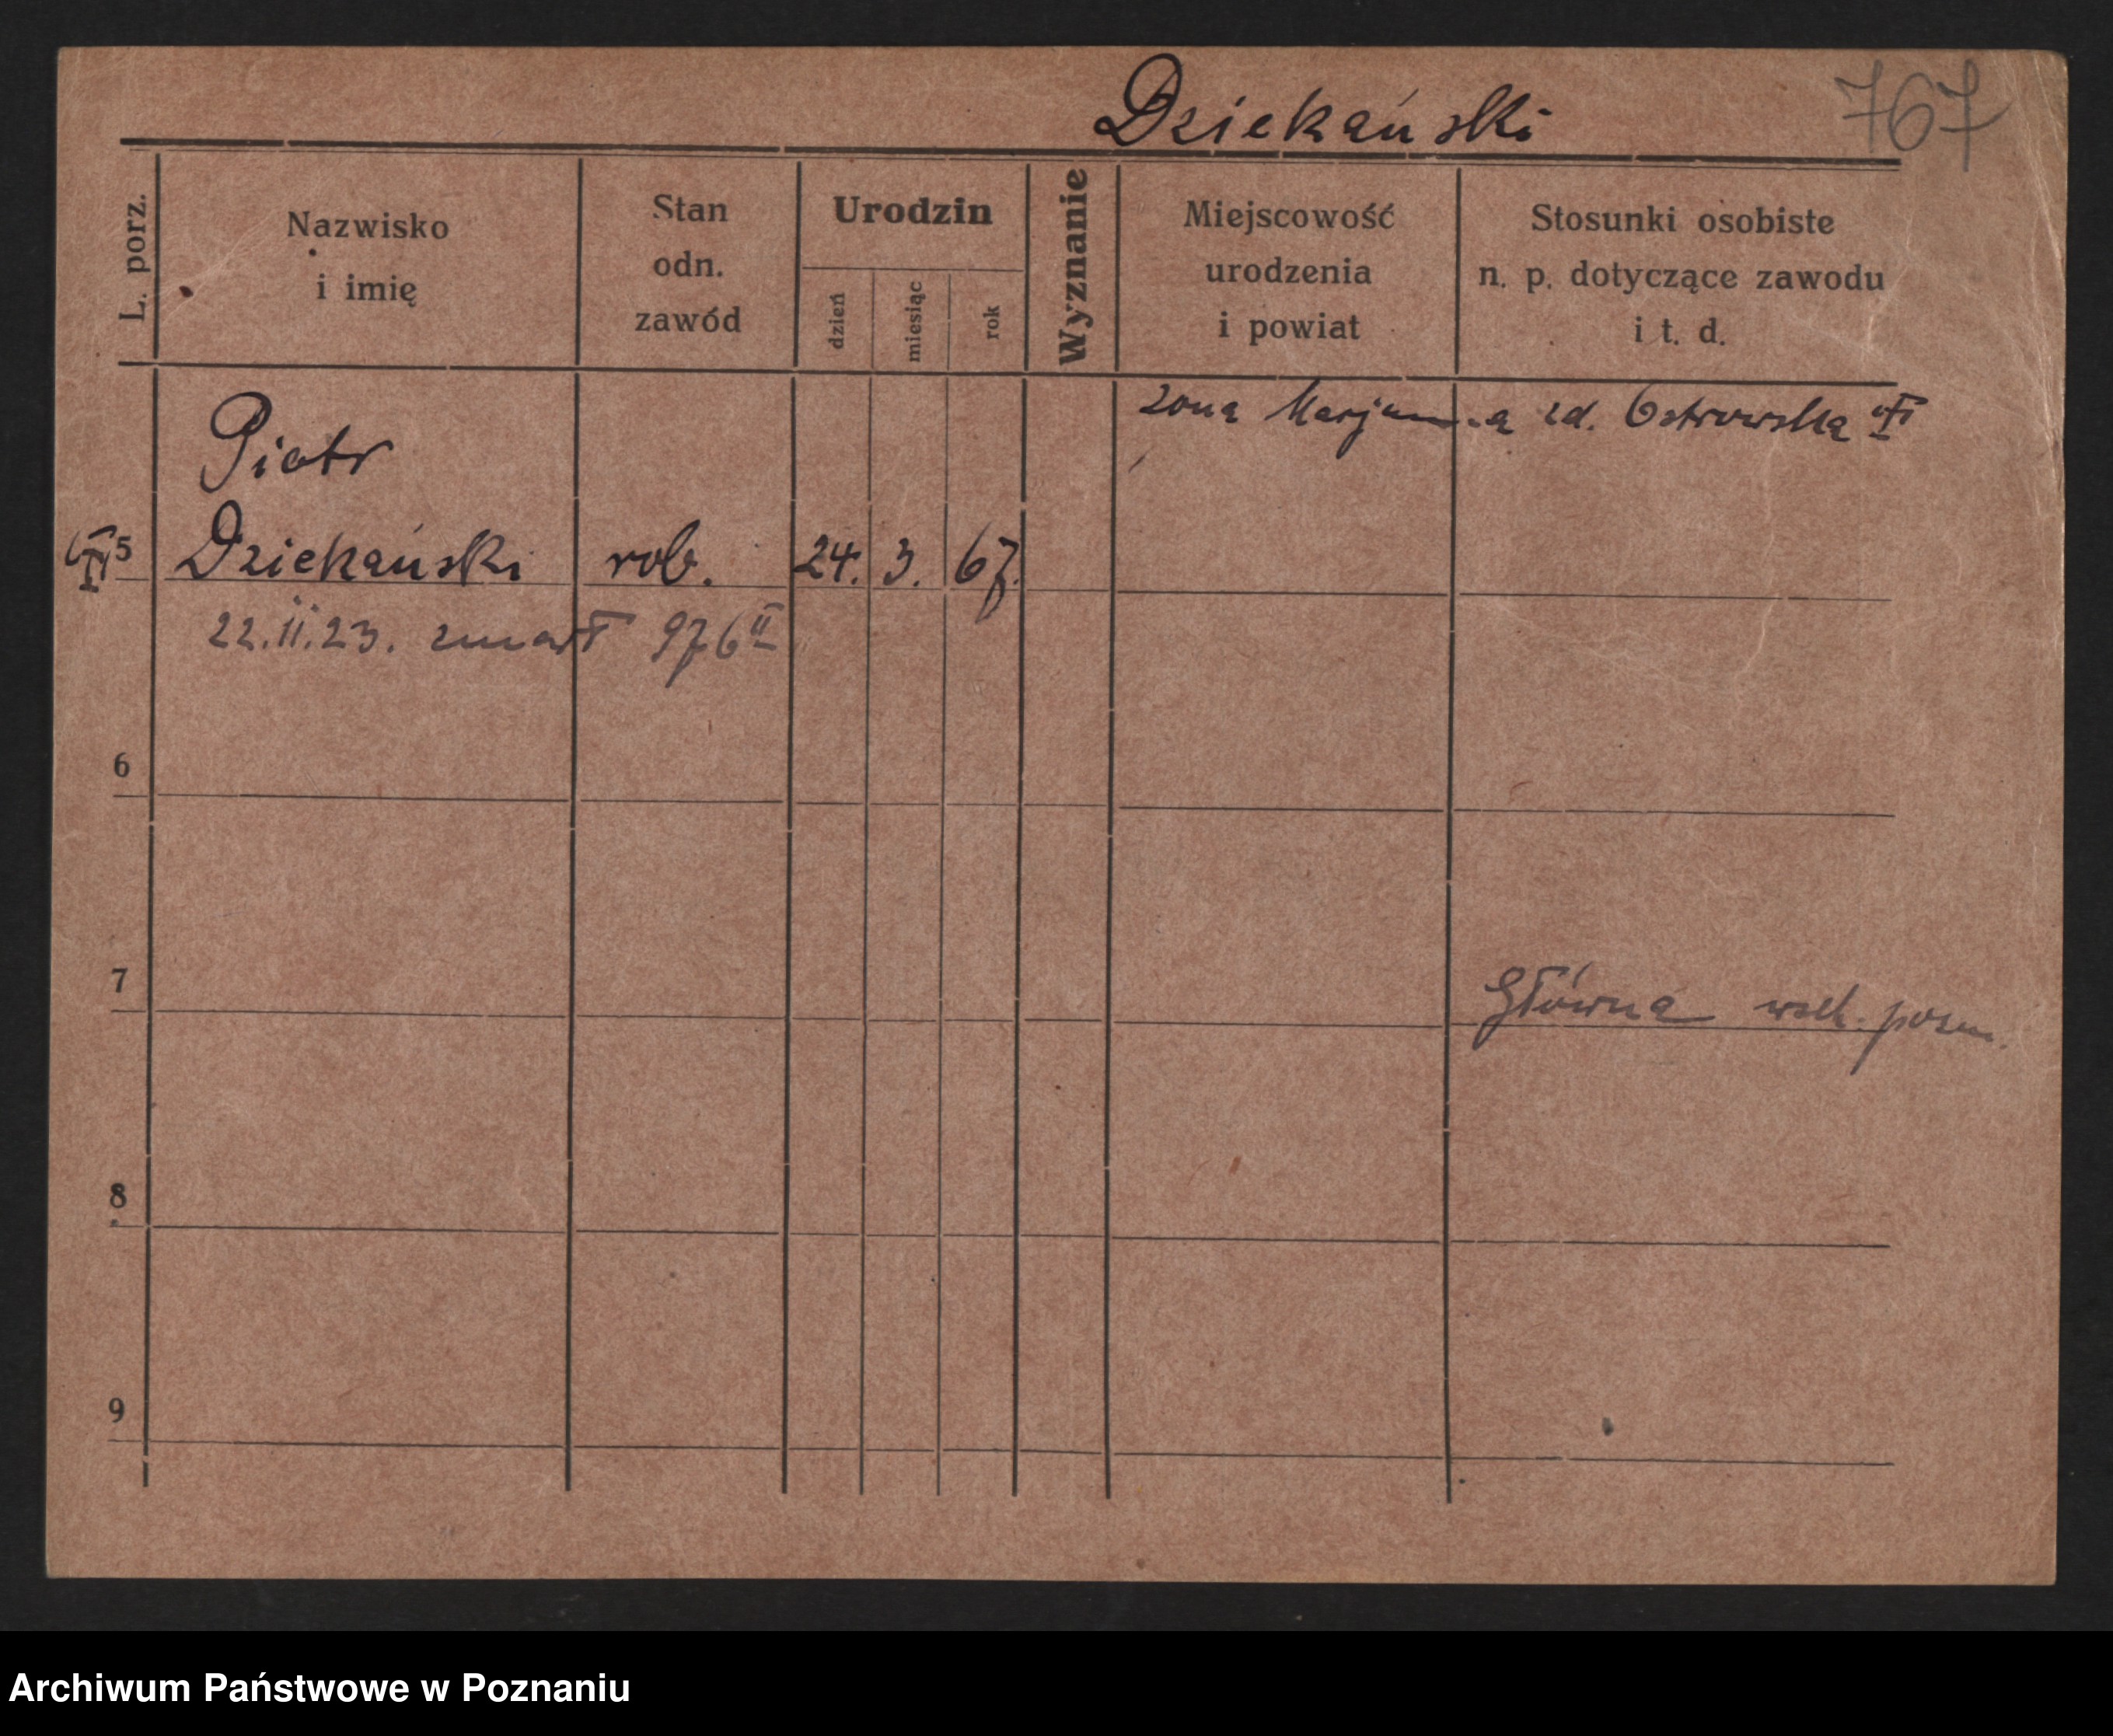 Dziekański 767
L. porz.
Nazwisko
i imię
Stan
odn.
zawód
Urodzin
dzień
miesiąc
rok
Wyznanie
Miejscowość
urodzenia
i powiat
Stosunki osobiste
n. p. dotyczące zawodu
i t. d.
żona Marjanna zd. Ostrowska
Piotr
5 Dziekański rob. 24. 3. 67.
22.II.23. zmarł 976 II
6
7
Główna wsch. pozn.
8
9
Archiwum Państwowe w Poznaniu